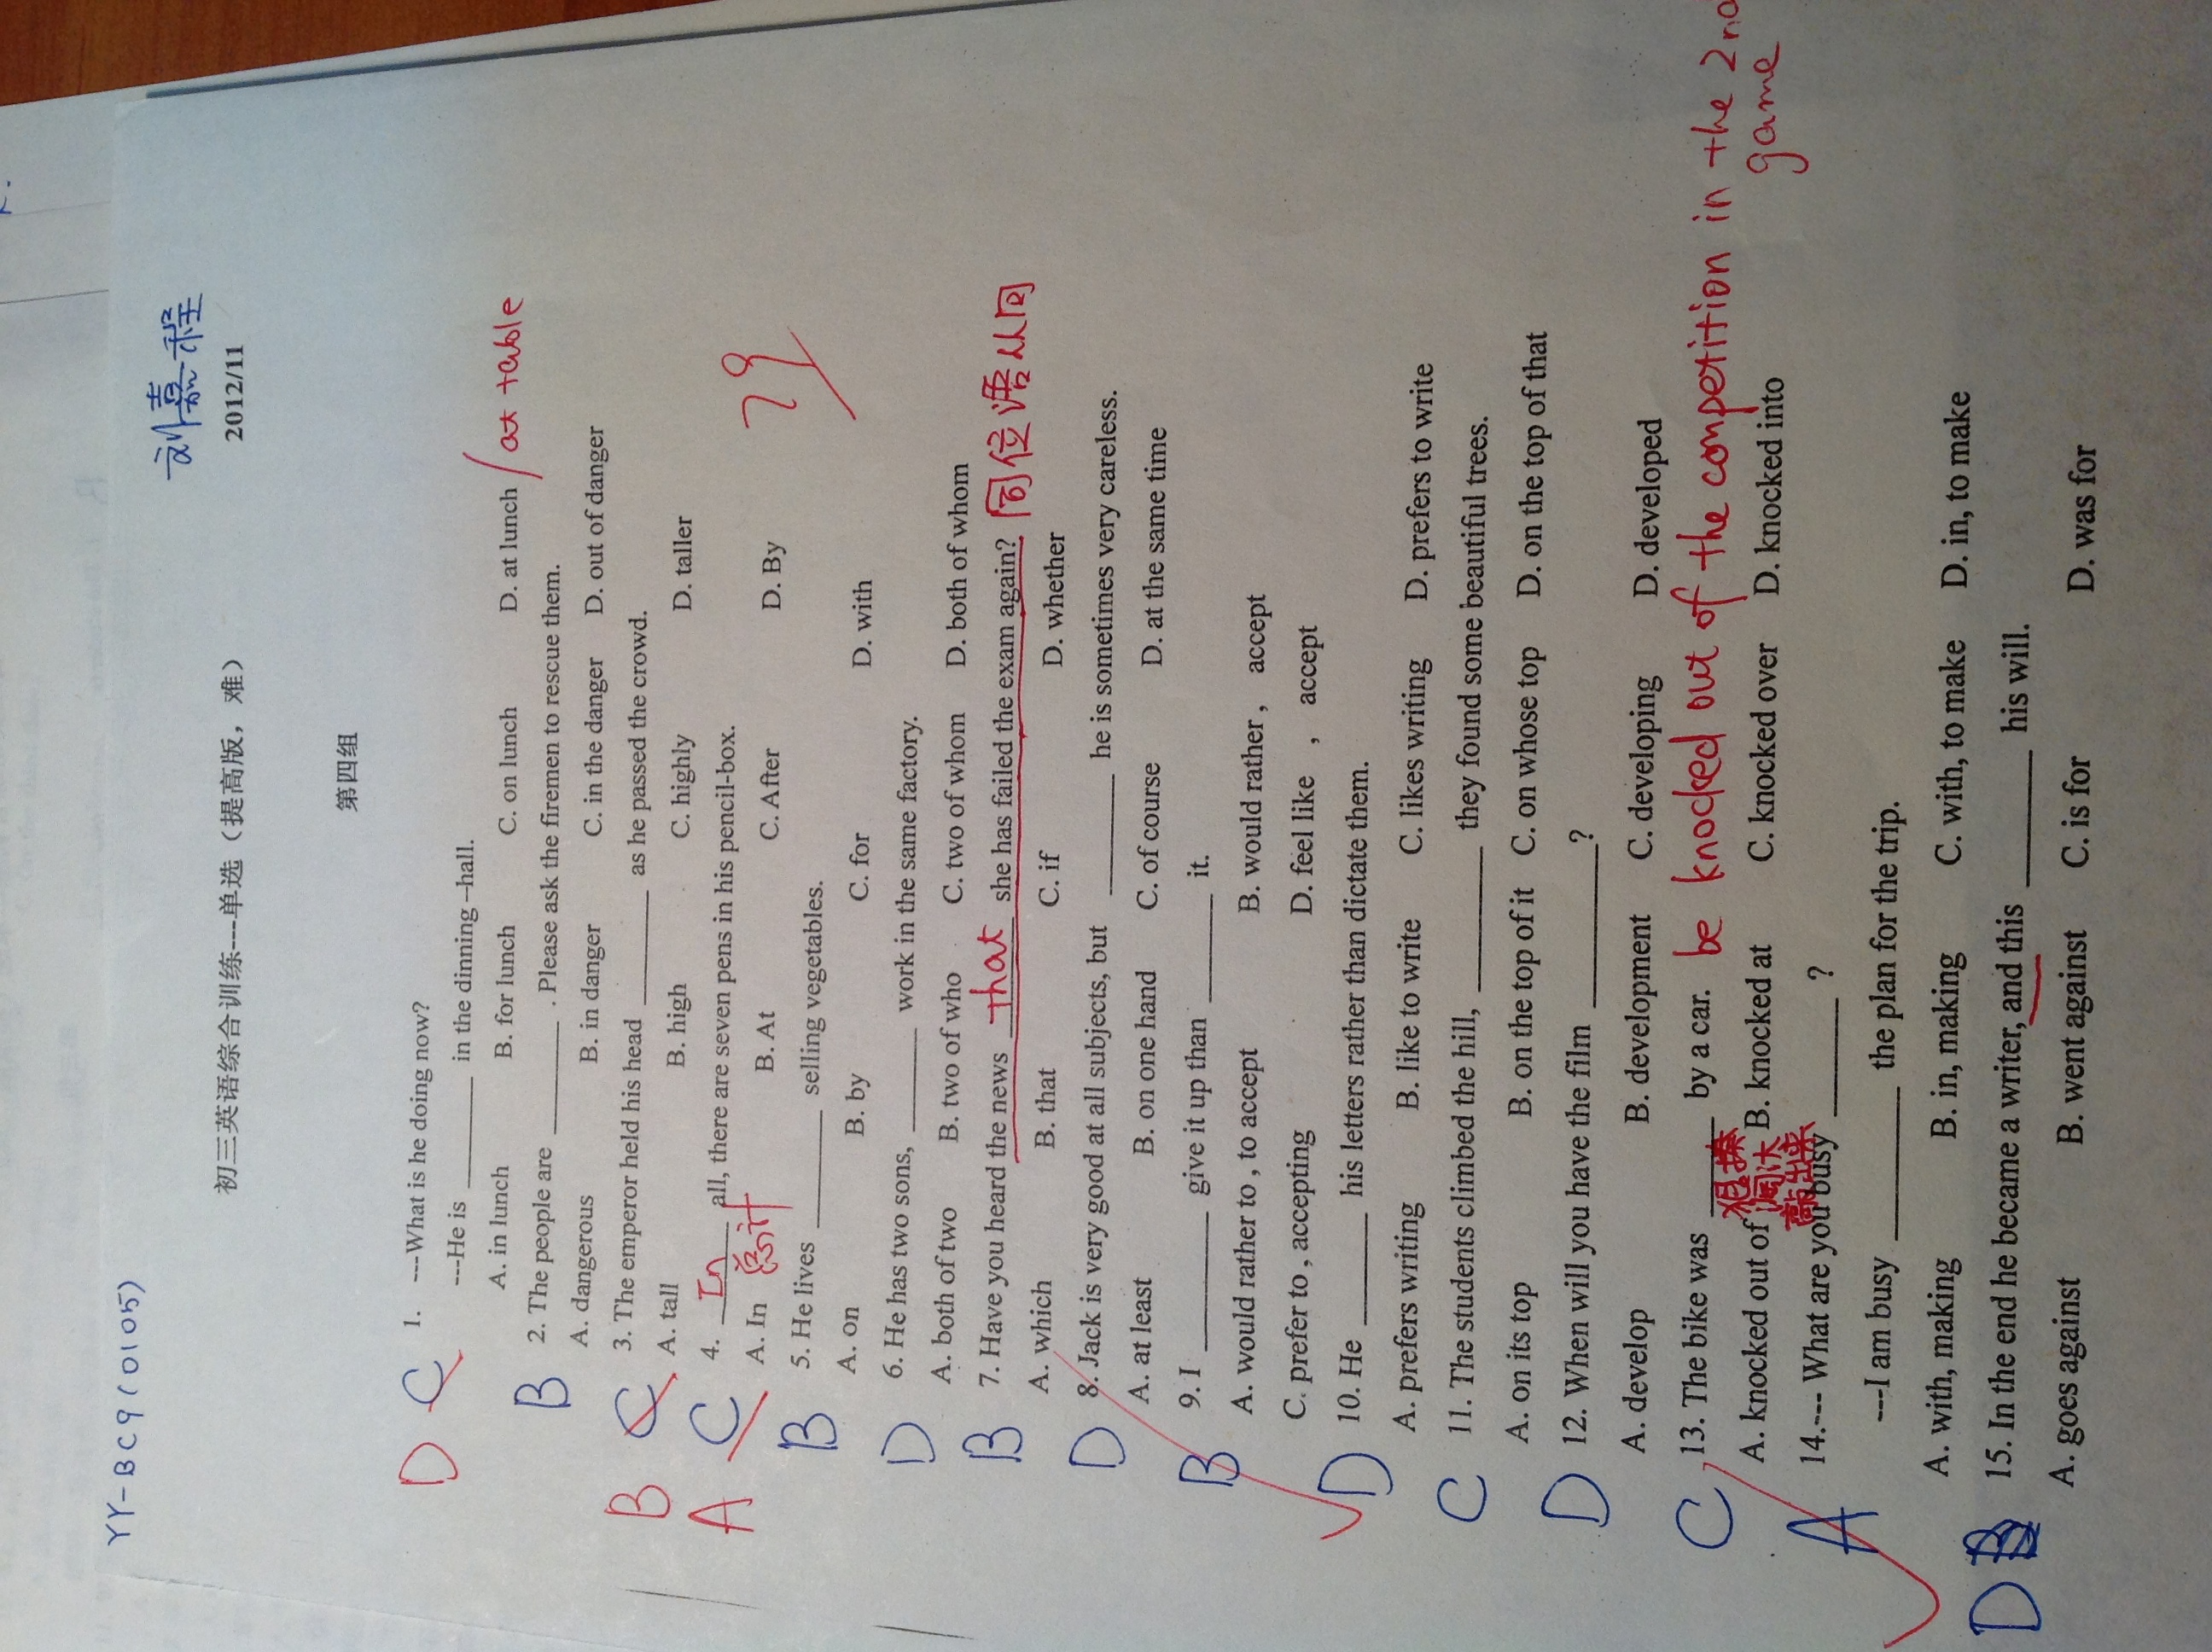 YY-BC9(0105)
刘嘉程
初三英语综合训练---单选（提高版，难）
2012/11
第四组
D C 1. ---What is he doing now?
---He is ________ in the dinning –hall.
A. in lunch B. for lunch C. on lunch D. at lunch / at table
B 2. The people are ________ . Please ask the firemen to rescue them.
A. dangerous B. in danger C. in the danger D. out of danger
B C 3. The emperor held his head ________ as he passed the crowd.
A. tall B. high C. highly D. taller
A C 4. In all, there are seven pens in his pencil-box.
A. In 总计 B. At C. After D. By
79
B 5. He lives ________ selling vegetables.
A. on B. by C. for D. with
D 6. He has two sons, ________ work in the same factory.
A. both of two B. two of who C. two of whom D. both of whom
B 7. Have you heard the news that she has failed the exam again? 同位语从句
A. which B. that C. if D. whether
D 8. Jack is very good at all subjects, but ________ he is sometimes very careless.
A. at least B. on one hand C. of course D. at the same time
B 9. I ________ give it up than ________ it.
A. would rather to , to accept B. would rather , accept
C. prefer to , accepting D. feel like , accept
D 10. He ________ his letters rather than dictate them.
A. prefers writing B. like to write C. likes writing D. prefers to write
C 11. The students climbed the hill, ________ they found some beautiful trees.
A. on its top B. on the top of it C. on whose top D. on the top of that
D 12. When will you have the film ________?
A. develop B. development C. developing D. developed
C 13. The bike was ________ by a car. be knocked out of the competition in the 2nd
game
A. knocked out of 狠揍 B. knocked at C. knocked over D. knocked into
淘汰
敲出来
A 14.--- What are you busy ________ ?
---I am busy ________ the plan for the trip.
A. with, making B. in, making C. with, to make D. in, to make
D 15. In the end he became a writer, and this ________ his will.
A. goes against B. went against C. is for D. was for